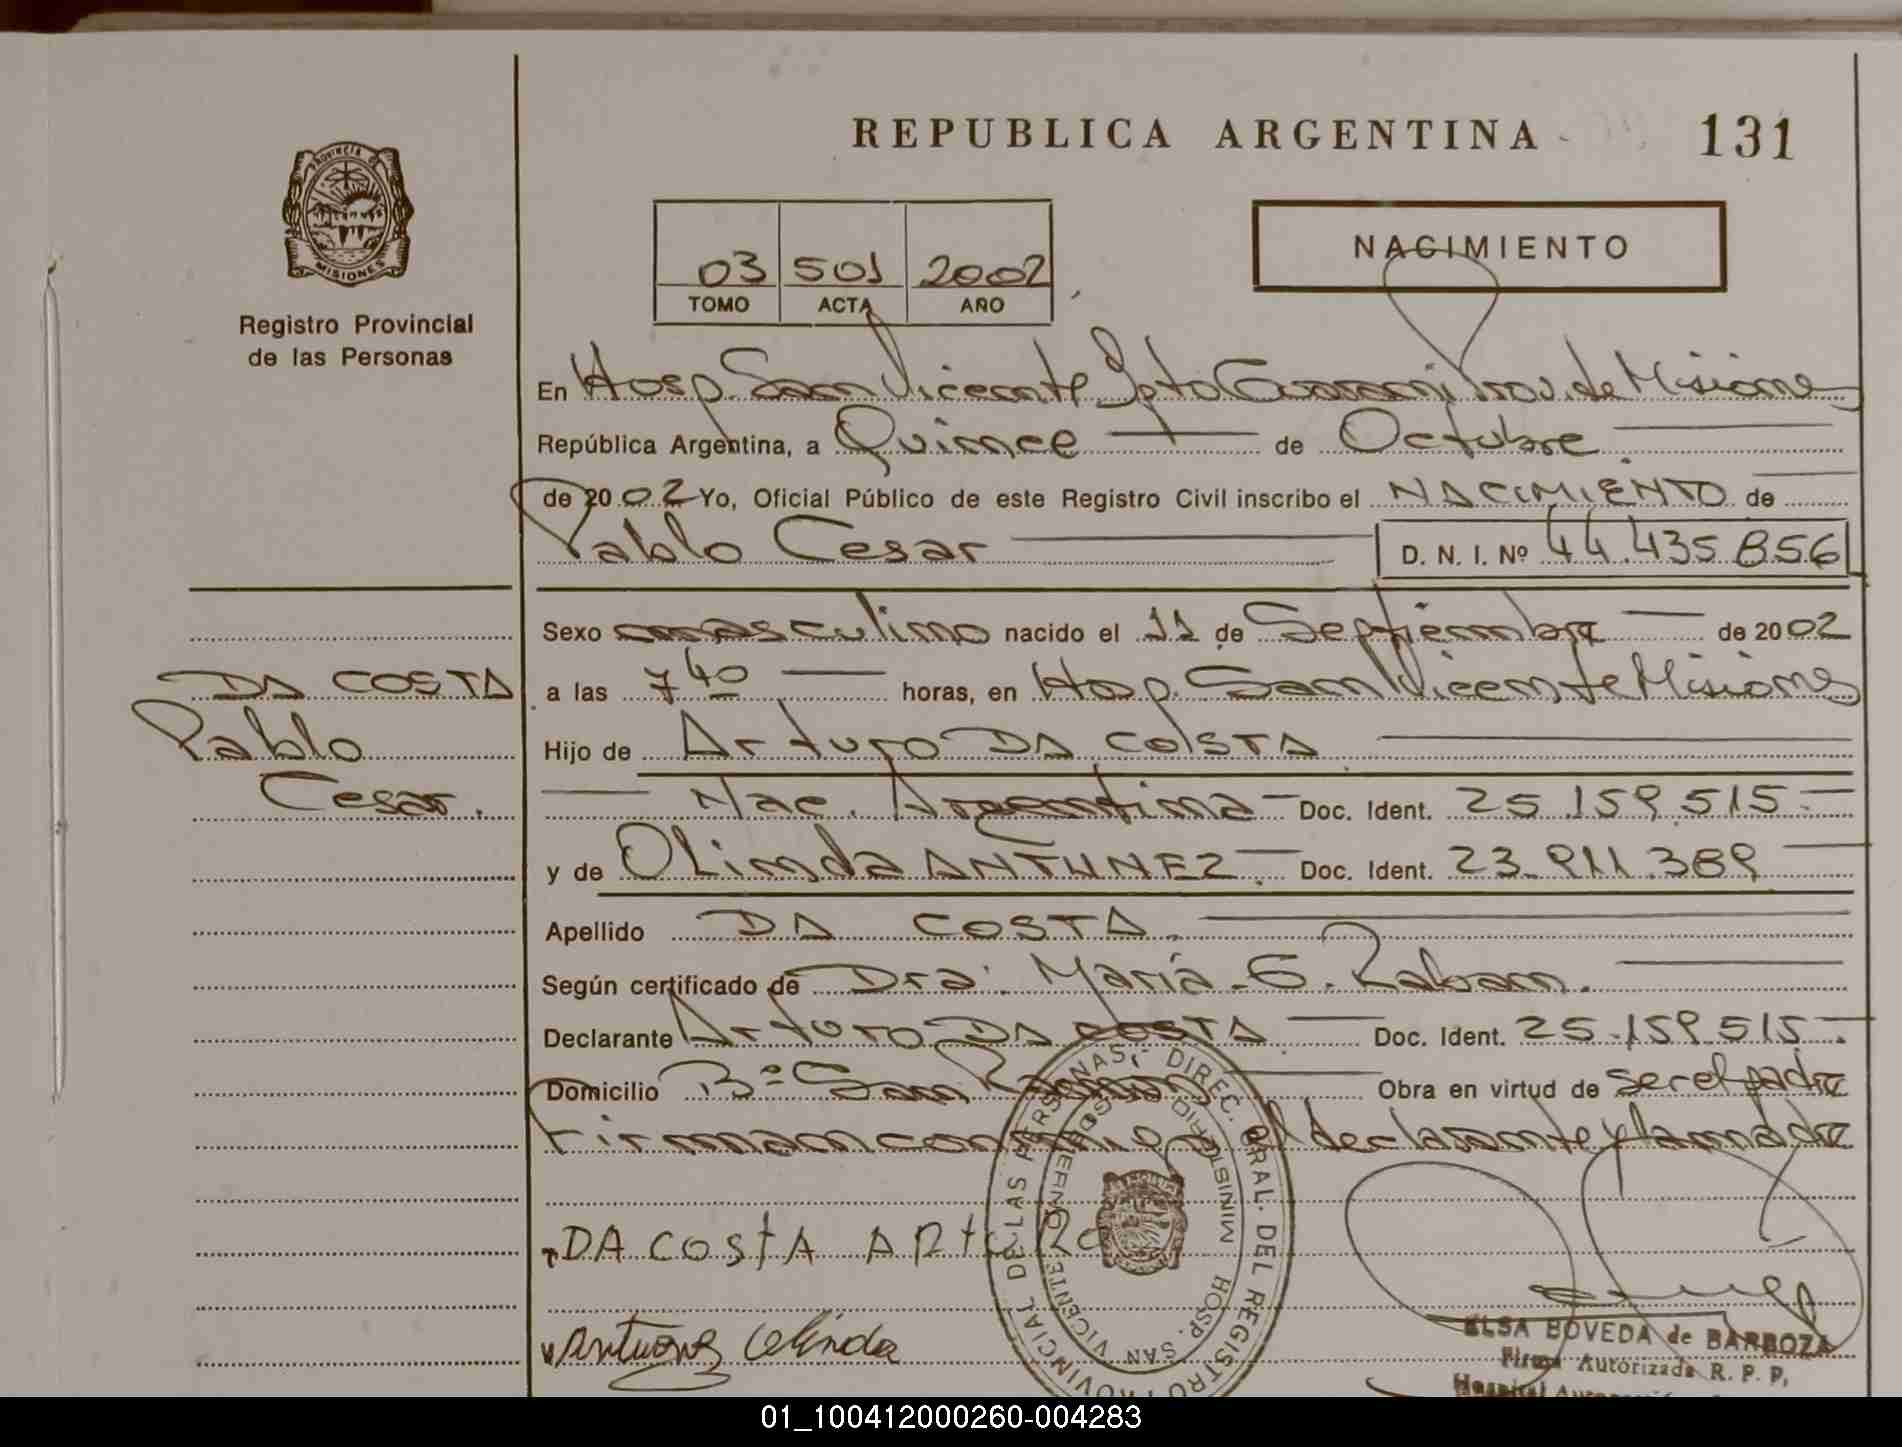 REPUBLICA ARGENTINA
131
PROVINCIA DE
MISIONES
Registro Provincial
de las Personas
03 501 2002
TOMO ACTA AÑO
NACIMIENTO
En Hosp. San Vicente Dpto Guarani Prov. de Misiones
República Argentina, a Quince de Octubre
de 2002 Yo, Oficial Público de este Registro Civil inscribo el NACIMIENTO de
Pablo Cesar D. N. I. Nº 44.435.856
Sexo masculino nacido el 11 de Septiembre de 2002
DA COSTA
Pablo
Cesar.
a las 7 40 horas, en Hosp. San Vicente Misiones
Hijo de Arturo DA COSTA
Nac. Argentina Doc. Ident. 25.159.515.
y de OLinda ANTUNEZ. Doc. Ident. 23.911.389
Apellido DA COSTA.
Según certificado de Dra. María G.
Declarante Arturo DA COSTA. Doc. Ident. 25.159.515.
Domicilio Bº San Ramon Obra en virtud de ser el padre
Firman conmigo el declarante y la madre
DA COSTA ARtuRO
Antunez Olinda
REGISTRO PROVINCIAL DE LAS PERSONAS - DIREC. GRAL. DEL
MINISTERIO DE GOBIERNO
HOSP. SAN VICENTE
ELSA BOVEDA de BARBOZA
Firma Autorizada R. P. P.
Hospital
01_100412000260-004283